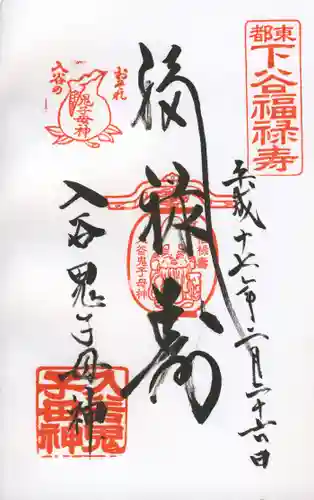 東都
下谷福禄寿
平成十七年二月二十六日
福禄寿
福禄寿
入谷鬼子母神
おそれ
入谷の
鬼子母神
入谷鬼子母神
入谷鬼
子母神